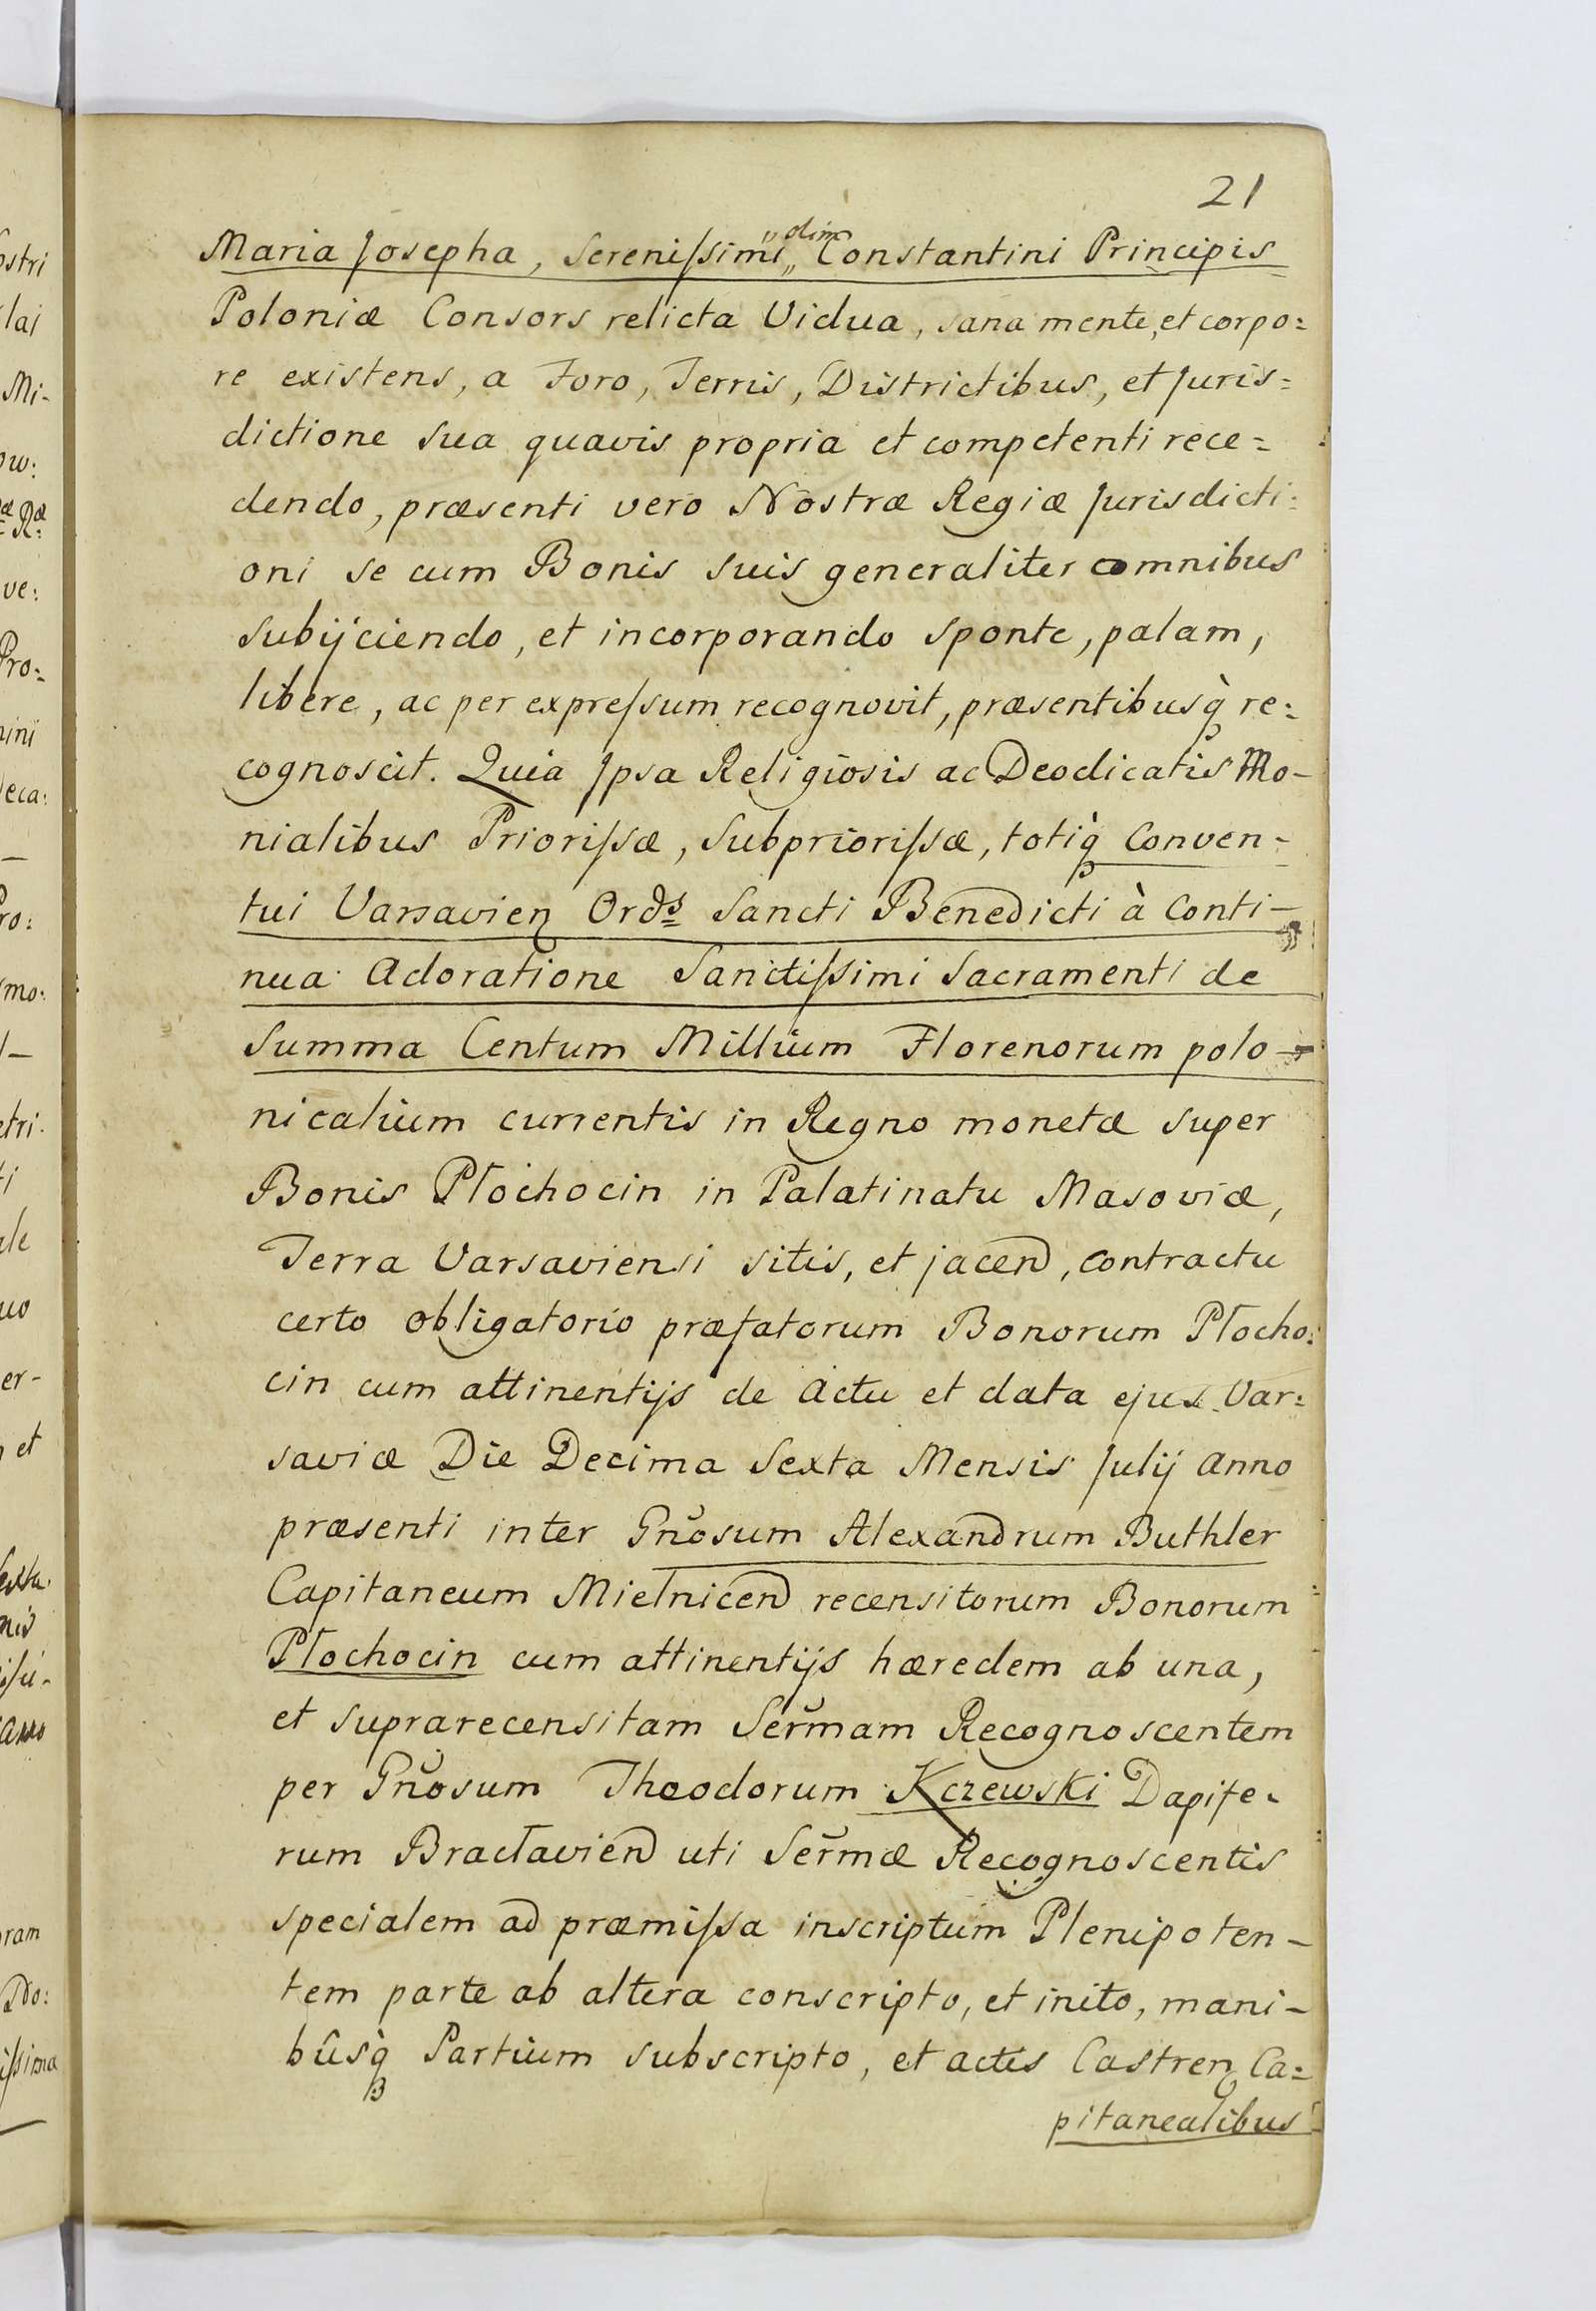 21
Maria Josepha, Serenissimi olim Constantini Principis
Poloniæ Consors relicta Vidua, sana mente, et corpo=
re existens, a Foro, Terris, Districtibus, et Juris=
dictione sua quavis propria et competenti rece=
dendo, præsenti vero Nostræ Regiæ Jurisdicti=
oni se cum Bonis suis generaliter omnibus
subijciendo, et incorporando sponte, palam,
libere, ac per expressum recognovit, præsentibusq̀ re=
cognoscit. Quia Ipsa Religiosis ac Deodicatis Mo-
nialibus Priorissæ, Subpriorissæ, totiq̀ Conven=
tui Varsavien Ords Sancti Benedicti à Conti-
nua Adoratione Sanctissimi Sacramenti de
Summa Centum Millium Florenorum polo-
nicalium currentis in Regno monetæ super
Bonis Płochocin in Palatinatu Masoviæ,
Terra Varsaviensi sitis, et jacend, contractu
certo obligatorio præfatorum Bonorum Płocho=
cin cum attinentijs de Actu et data ejus Var=
saviæ Die Decima Sexta Mensis Julij Anno
præsenti inter Gn̆osum Alexandrum Buthler
Capitaneum Mielnicen recensitorum Bonorum
Płochocin cum attinentijs hæredem ab una,
et suprarecensitam Ser̆mam Recognoscentem
per Gn̆osum Theodorum Kczewski Dapife=
rum Bracłavien uti Ser̆mæ Recognoscentis
specialem ad præmissa inscriptum Plenipoten-
tem parte ab altera conscripto, et inito, mani-
bûsq̀ Partium subscripto, et actis Castren Ca=
pitanealibus